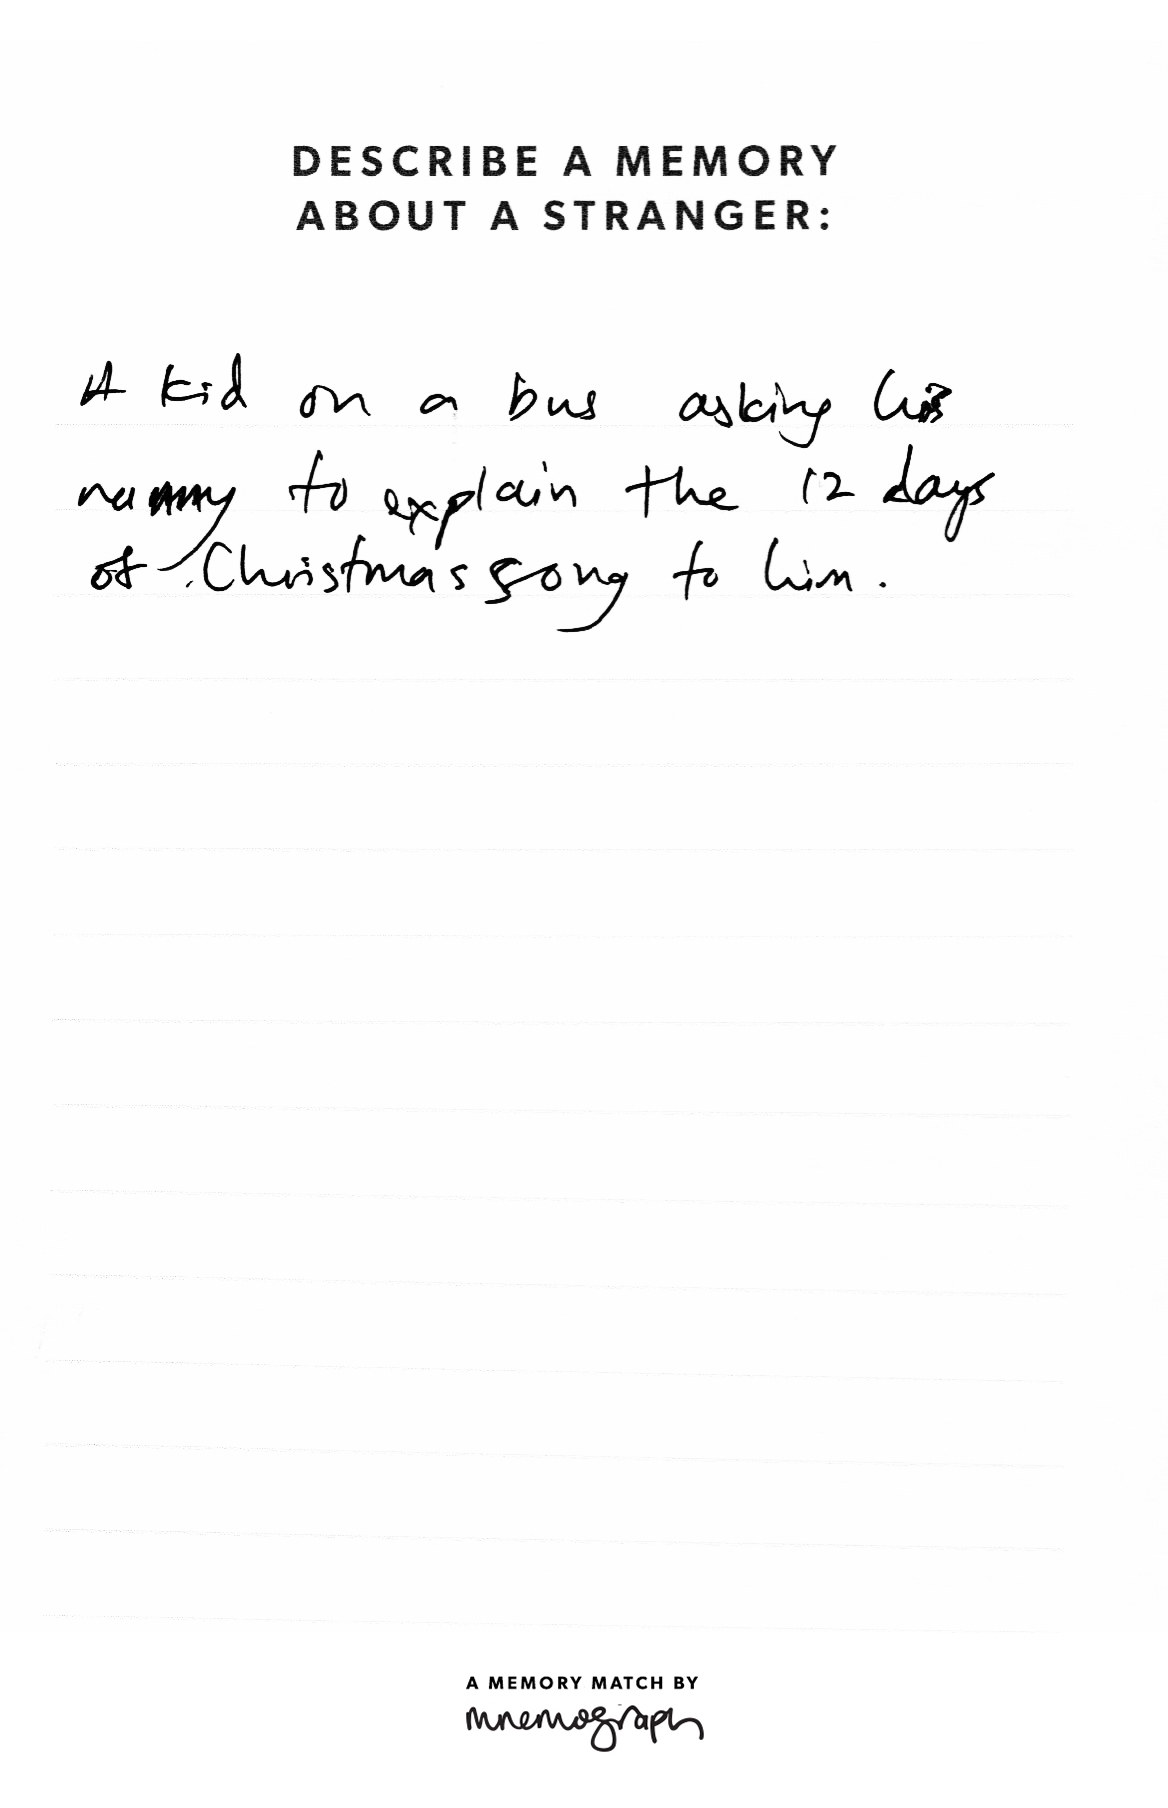 DESCRIBE A MEMORY
ABOUT A STRANGER:
A kid on a bus asking his
to explain the 12 days
of Christmas song to him.
A MEMORY MATCH BY
mnemograph